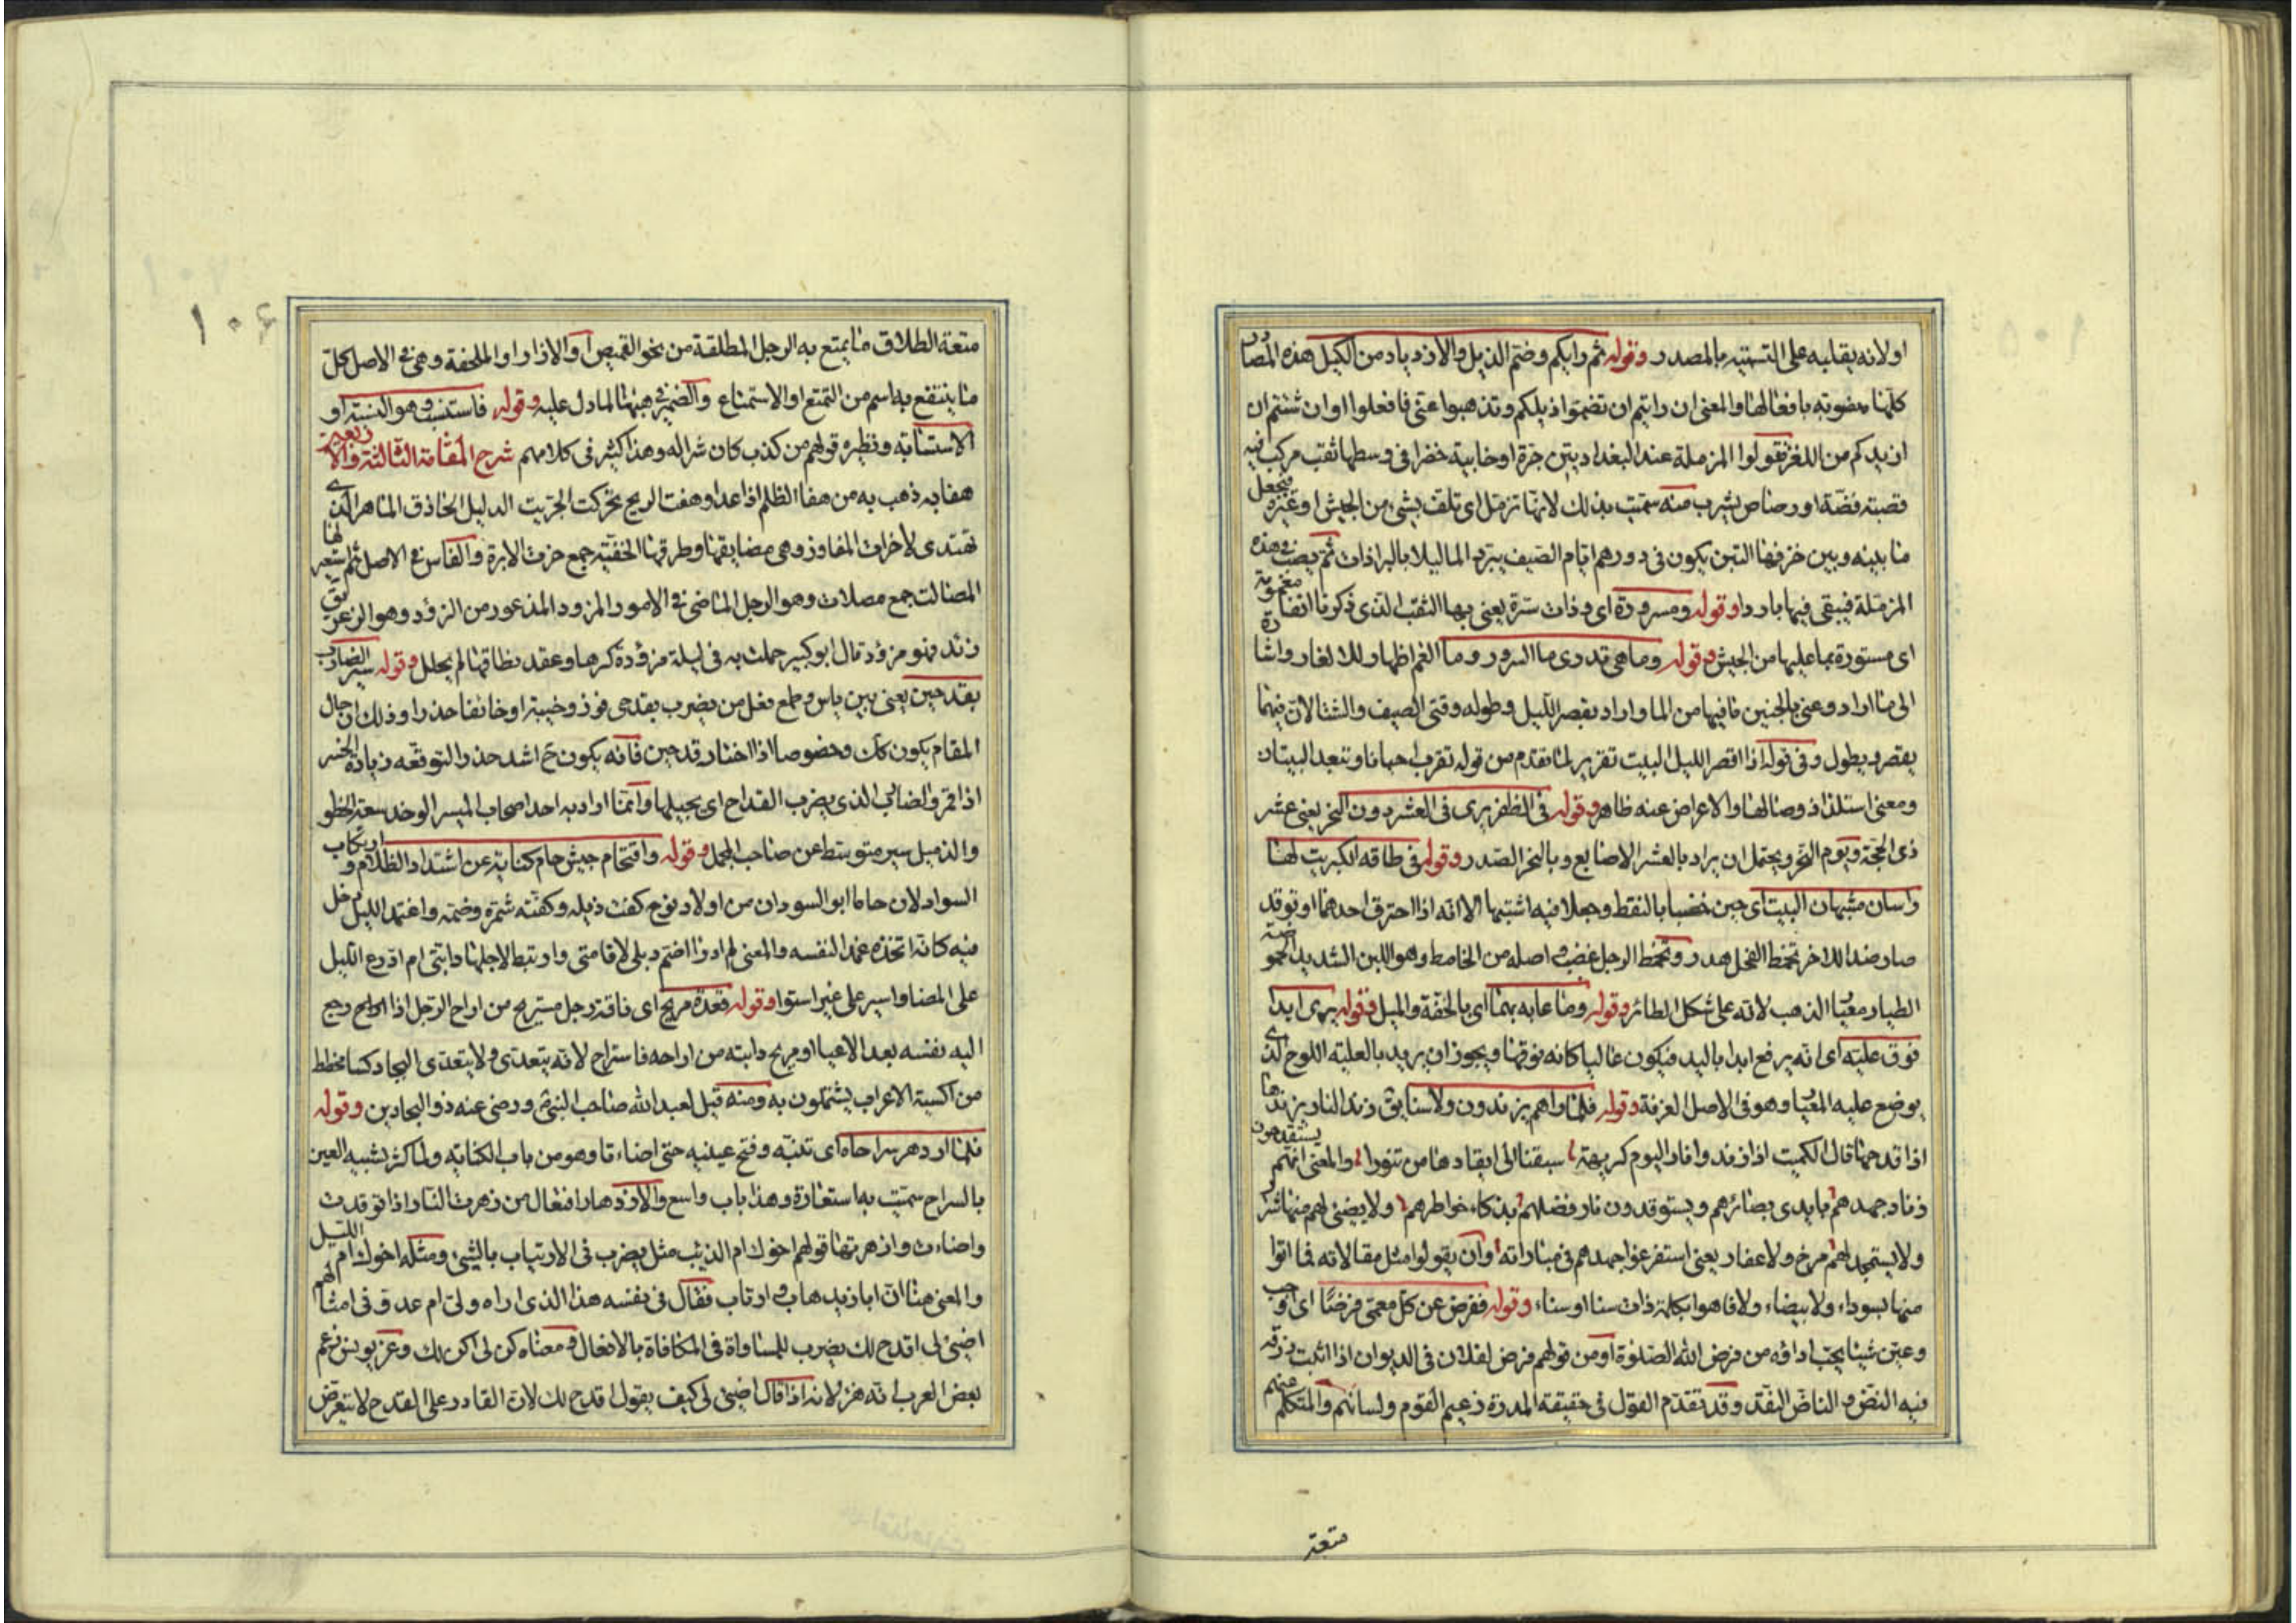 اولانه يقلبه على التستيه بالمصدر وقوله ثم رايكم وضم الذيل والازدياد من الكيل هذه المصادر
كلها منصوبة بافعالها والمعنى ان رايتم ان تضموا ذيلكم وتذهبوا عنى فافعلوا او ان شئتم ان
ازيدكم من اللغز فقولوا المزملة عند البغداديين جرة او خابية خضرا فى وسطها ثقب مركب فيه
قصبة فضة او رصاص يشرب منه سميت بذلك لانها تزمل اى تلف بشىء من الخيش او غيره فيجعل
ما بينه وبين خزفها التبن يكون فى دورهم ايام الصيف يبرد الما ليلا بالبرادات ثم يصب فى هذه
المزملة فيبقى فيها باردا وقوله ومسرورة اى وذات سرة يعنى بها الثقب الذى ذكرنا انفا مغمومة
اى مستورة بما عليها من الخيش وقوله وما هى تدرى ما السرور وما الغم اظهار للالغاز واشارة
الى ما اراد وعنى بالجنين ما فيها من الما واراد بقصر الليل وطوله وقتى الصيف والشتا لان فيهما
يقصر ويطول وفى قوله اذا قصر الليل البيت تقرير لما تقدم من قوله تقرب احيانا وتبعد البيتان
ومعنى استلذاذ وصالها والاعراض عنه ظاهر وقوله فى الظفر يرى فى العشر دون النحر يعنى عشر
ذى الحجة ويوم النحر ويحتمل ان يراد بالعشر الاصابع وبالنحر الصدر وقوله فى طاقه الكبريت لها
راسان مشبهان البيت اى حين خضبا بالنفط وجعلا فيه اشتبها الا انه اذا احترق احدهما وتوقد
صار ضدا للاخر تخمط الفحل هدر وتخمط الرجل غضب واصله من الخامط وهو اللبن الشديد الحموضة
الطيار معيار الذهب لانه على شكل الطائر وقوله وما عابه بهما اى بالخفة والميل وقوله يرى ابدا
فوق علية اى انه يرفع ابدا باليد فيكون عاليا كانه فوقها ويجوز ان يريد بالعلية اللوح الذى
يوضع عليه المعيار وهو فى الاصل الغرفة وقوله فلما راهم يزندون ولا سنا يق زند النار يزندها
اذا قدحها قال الكميت اذا زند وا نارا ليوم كريهة سبقنا الى ايقادها من تنورا والمعنى انهم يستقدحون
زناد جهدهم بايدى بصائرهم ويستوقدون نار فضلهم بذكاء خواطرهم ولا يضىء لهم منها شرر
ولا يستمجد لهم مرخ ولا عفار يعنى استفرغوا جهدهم فى مباراته وان يقولوا مثل مقالاته فما اتوا
منها بسوداء ولا بيضاء ولا فاهوا بكلمة ذات سنا او سناء وقوله ففرض عن كل معمى فرضا اى اوجب
وعين شيئا يجب اداؤه من فرض الله الصلوة او من قولهم فرض لفلان فى الديوان اذا اثبت رزقه
فيه النض والناض النقد وقد تقدم القول فى حقيقة المدرة زعيم القوم ولسانهم والمتكلم عنهم
متعة
١٠٤
متعة الطلاق ما يمتع به الرجل المطلقة من نحو القميص او الازار او الملحفة وهى فى الاصل كل
ما ينتفع به اسم من التمتع او الاستمتاع والضمير فى هبها لما دل عليه وقوله فاستنسب وهو النسبة او
الاستنابة ونظيره قولهم من كذب كان شرا له وهذا كثير فى كلامهم شرح المقامة الثالثة والاربعين
هفا به ذهب به من هفا الظلم اذا عدا وهفت الريح تحركت الخريت الدليل الحاذق الماهر الذى
يهتدى لاخرات المفاوز وهى مضايقها وطرقها الخفية جمع خرت الابرة والفاس فى الاصل ثم استعير لها
المصالت جمع مصلات وهو الرجل الماضى فى الامور المزود المذعور من الزؤد وهو الزعر
زئد فهو مزؤد قال ابو كبير حملت به فى ليلة مزؤدة كرها وعقد نطاقها لم يحلل وقوله سير الضارب
بقدحين يعنى بين ياس وطمع فعل من يضرب بقدحى فوز وخيبة او خائفا حذرا وذلك ان حال
المقام يكون كك وخصوصا اذا اختار قدحين فانه يكون ح اشد حذرا لتوقعه زيادة الخسر
اذا قمر والضارب الذى يضرب القداح اى يجيلها وانما اراد به احد اصحاب الميسر الوخد سعة الخطو
والذميل سير متوسط عن صاحب المجمل وقوله واقتحام جيش حام كناية عن اشتداد الظلام وارتكاب
السواد لان حاما ابو السودان من اولاد نوح كفت ذيله وكفته شمره وضمه واغتمد الليل دخل
فيه كانه اتخذه غمدا لنفسه والمعنى لم ادر ااضم ذيلى لاقامتى وارتبط لاجلها دابتى ام ادرع الليل
على المضا واسير على غير استوا وقوله قعدة مريح اى ناقة رجل مستريح من اراح الرجل اذا رجع
اليه نفسه بعد الاعيا او مريح دابته من اراحه فاستراح لانه يتعدى ولا يتعدى البجاد كسا مخطط
من اكسية الاعراب يشتملون به ومنه قيل لعبد الله صاحب النبى ورضى عنه ذو البجادين وقوله
فلما ازدهر سراجاه اى تنبه وفتح عينيه حتى اضاءتا وهو من باب الكناية ولما كثر تشبيه العين
بالسراج سميت به استعارة وهذا باب واسع والازدهار افتعال من زهرت النار اذا توقدت
واضاءت وازهرتها قولهم اخوك ام الذئب مثل يضرب فى الارتياب بالشىء ومثله اخوك ام الليل
والمعنى هنا ان ابا زيد هاب وارتاب فقال فى نفسه هذا الذى اراه ولى ام عدو وفى امثالهم
اضئ لى اقدح لك يضرب للمساواة فى المكافاة بالافعال ومعناه كن لى اكن لك وعن يونس زعم
بعض العرب انه هزؤ لانه اذا قال اضئ لى كيف يقول اقدح لك لان القادر على القدح لا يتعرض